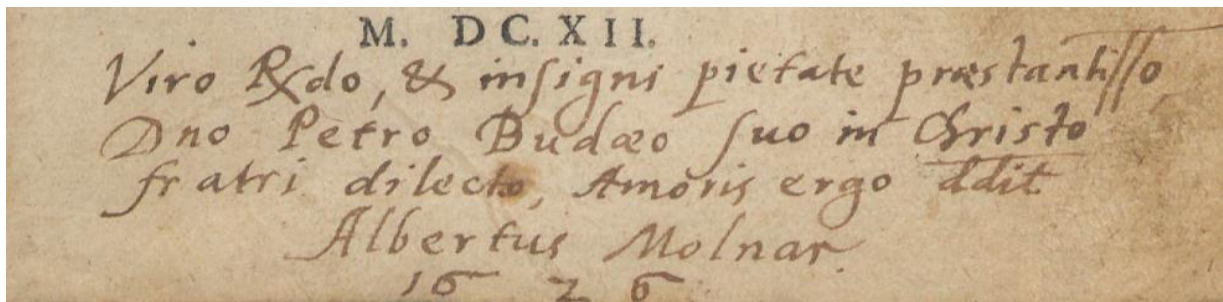 M. DC. XII.
Viro Rdo, & inſigni pietate præstantiſſo,
Dno Petro Budæo ſuo in Christo
fratri dilecto, Amoris ergo ddit
Albertus Molnar.
16 26